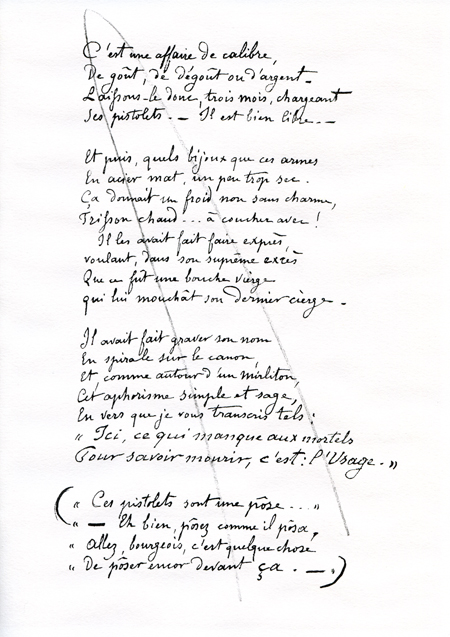 C'est une affaire de calibre,
De goût, de dégoût ou d'argent –
Laissons-le donc, trois mois, chargeant
Ses pistolets. — Il est bien libre. —
Et puis, quels bijoux que ces armes
En acier mat, un peu trop sec.
Ça donnait un froid non sans charme,
Frisson chaud... à coucher avec !
Il les avait fait faire exprès,
voulant, dans son suprême excès
Que ce fût une bouche vierge
qui lui mouchât son dernier cierge –
Il avait fait graver son nom
En spirale sur le canon,
Et, comme autour d'un mirliton,
Cet aphorisme simple et sage,
En vers que je vous transcris tels :
« Ici, ce qui manque aux mortels
Pour savoir mourir, c'est : l'Usage. »
(« Ces pistolets sont une pôse.... »
« — Eh bien, pôsez comme il pôsa,
« Allez, bourgeois, c'est quelque chose
« De pôser encor devant ça. — »)